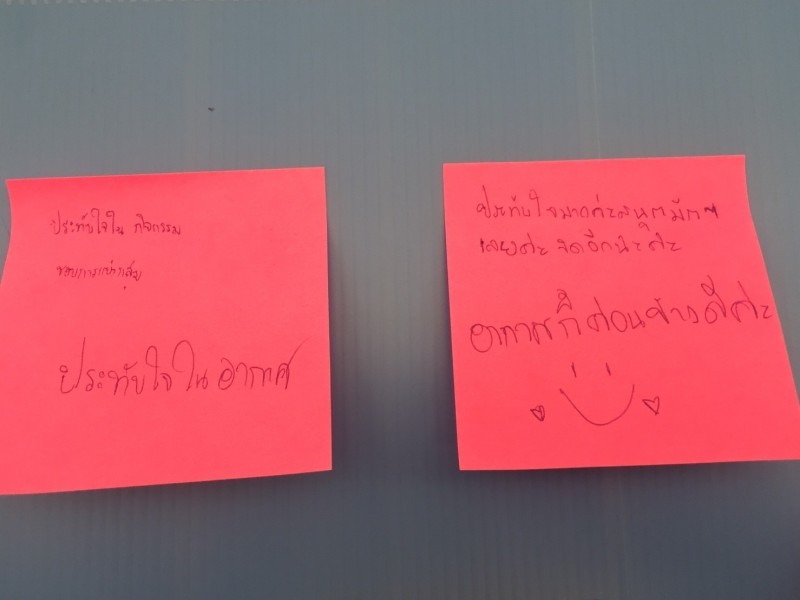 ประทับใจใน กิจกรรม
ชอบการแบ่งกลุ่ม
ประทับใจใน อากาศ
ประทับใจมากค่ะสนุกมักๆ
เลยค่ะ จัดอีกนะค่ะ
อากาศก็ค่อนข้างดีค่ะ